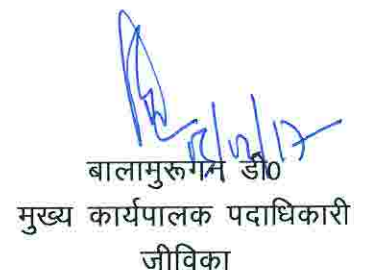 बालामुरूगन डी0
मुख्य कार्यपालक पदाधिकारी
जीविका